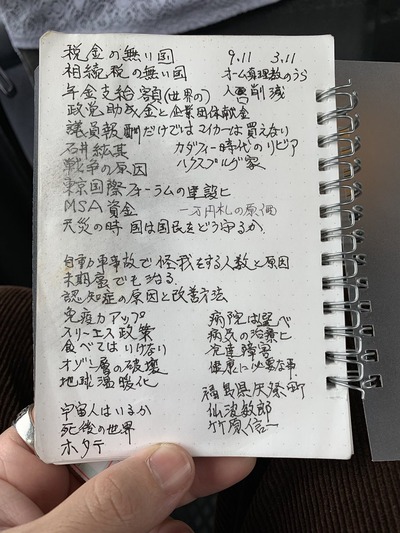 税金の無い国 9.11 3.11
相続税の無い国 オーム真理教のうら
年金支給額(世界の) 人口削減
政党助成金と企業団体献金
議員報酬だけではマイカーは買えない
石井紘基 カダフィー時代のリビア
戦争の原因 ハプスブルグ家
東京国際フォーラムの建設ヒ
MSA資金 一万円札の原価
天災の時 国は国民をどう守るか
自動車事故で怪我をする人数と原因
末期癌でも治る
認知症の原因と改善方法
免疫力アップ 病院は
スリーエス政策 病気の治療ヒ
食べてはいけない 発達障害
オゾン層の破壊 健康に必要な事
地球温暖化
福島県矢祭町
宇宙人はいるか 仙波敏郎
死後の世界 竹原信一
ホタテ